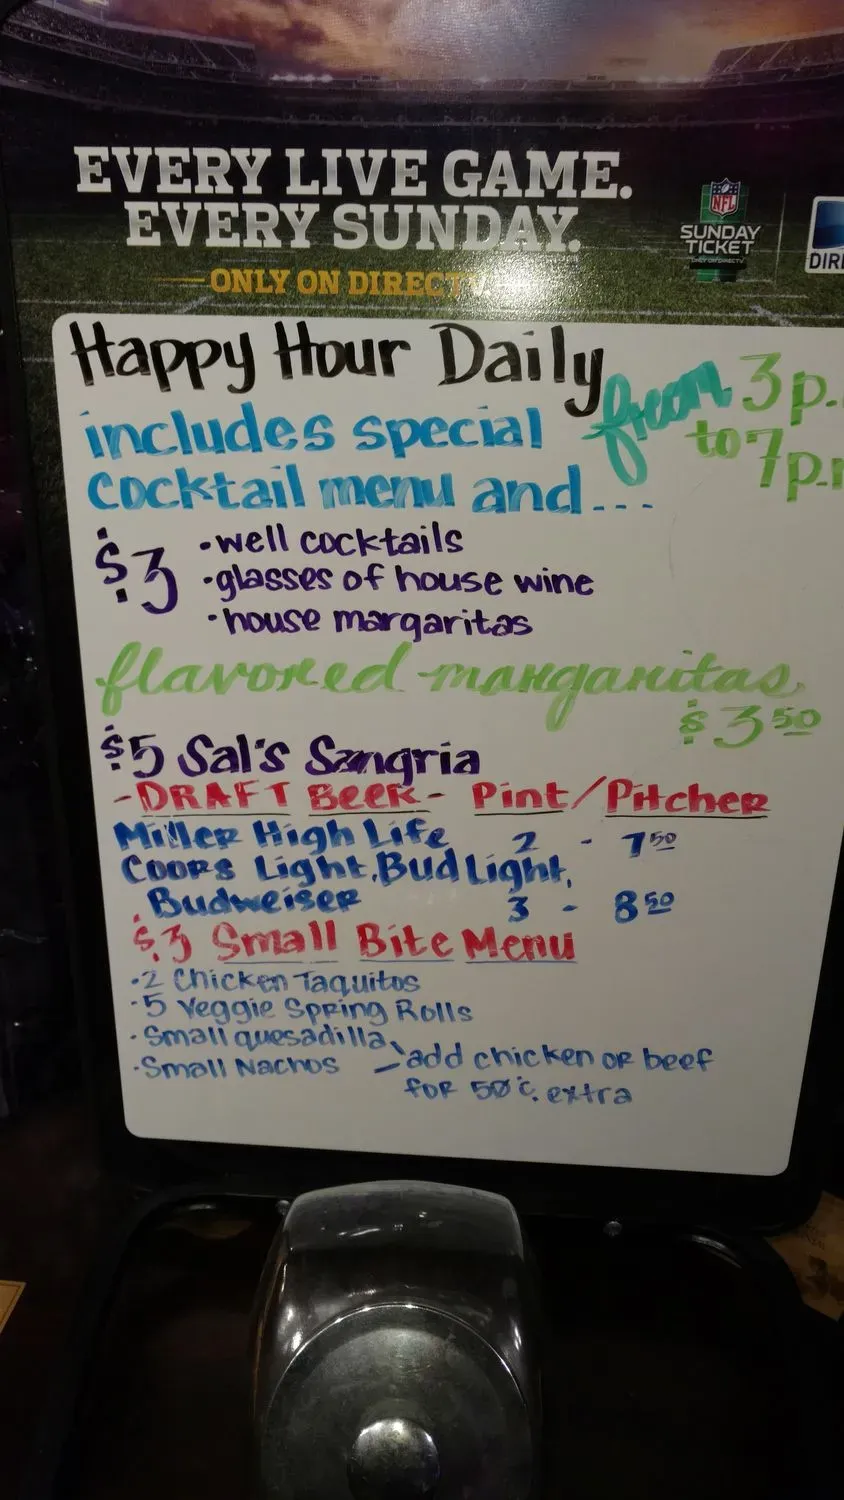 EVERY LIVE GAME.
EVERY SUNDAY.
ONLY ON DIRECTV
NFL
SUNDAY
TICKET
ONLY ON DIRECTV
DIRE
Happy Hour Daily
from 3 p.
to 7 p.m
includes special
cocktail menu and...
$3 • well cocktails
• glasses of house wine
• house margaritas
flavored margaritas
$3 50
$5 Sal's Sangria
- DRAFT BEER - Pint/Pitcher
Miller High Life 2 - 7 50
Coors Light, Bud Light,
Budweiser 3 - 8 50
$3 Small Bite Menu
• 2 Chicken Taquitos
• 5 Veggie Spring Rolls
• Small quesadilla
• Small Nachos
add chicken or beef
for 50¢ extra